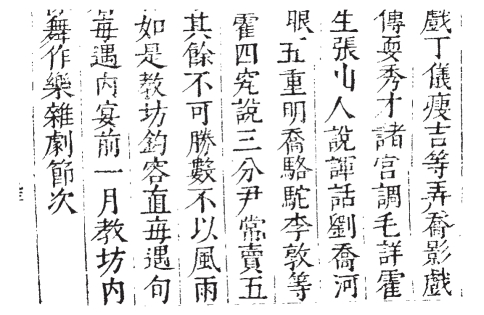 戲丁儀瘦吉等弄喬影戲
傳耍秀才諸宮調毛詳霍
生張山人說諢話劉喬河
眼五重明喬駱駝李敦等
霍四究說三分尹常賣五
其餘不可勝數不以風雨
如是教坊鈞容直每遇旬
每遇内宴前一月教坊内
舞作樂雜劇節次